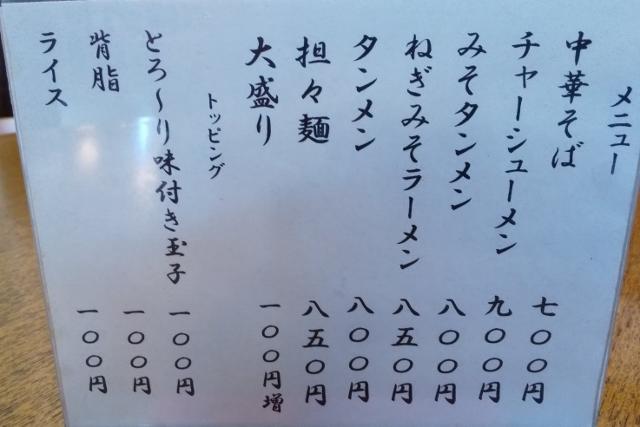 メニュー
中華そば 七〇〇円
チャーシューメン 九〇〇円
みそタンメン 八〇〇円
ねぎみそラーメン 八五〇円
タンメン 八〇〇円
担々麺 八五〇円
大盛り 一〇〇円増
トッピング
とろ～り味付き玉子 一〇〇円
背脂 一〇〇円
ライス 一〇〇円